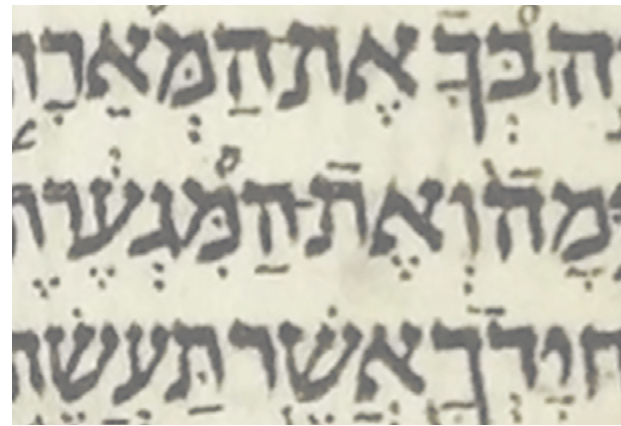 ה בְּךָ אֶת־הַמְּאֵרָה
וּמָה וְאֶת־הַמִּגְעֶרֶת
ח יָדְךָ אֲשֶׁר תַּעֲשֶׂה